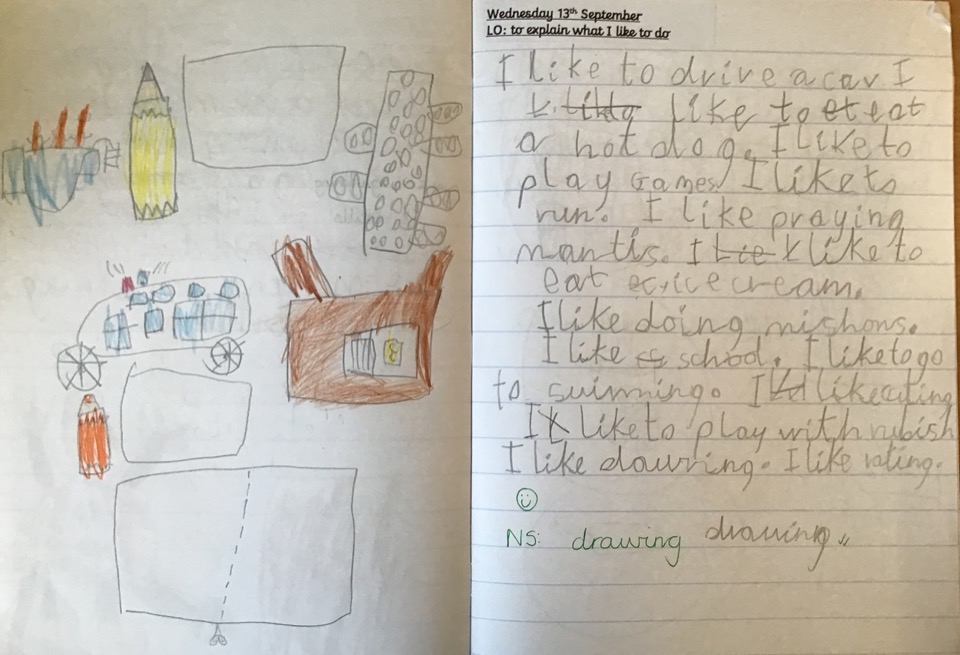 Wednesday 13th September
LO: to explain what I like to do
I like to drive a car I
like to eat
a hot dog. I like to
play Games. I like to
run. I like praying
mantis. I like to
eat ice cream.
I like doing mishons.
I like school. I like to go
to swimming. I like cuting
I like to play with rubish
I like dawring. I like rating.
NS: drawing drawing